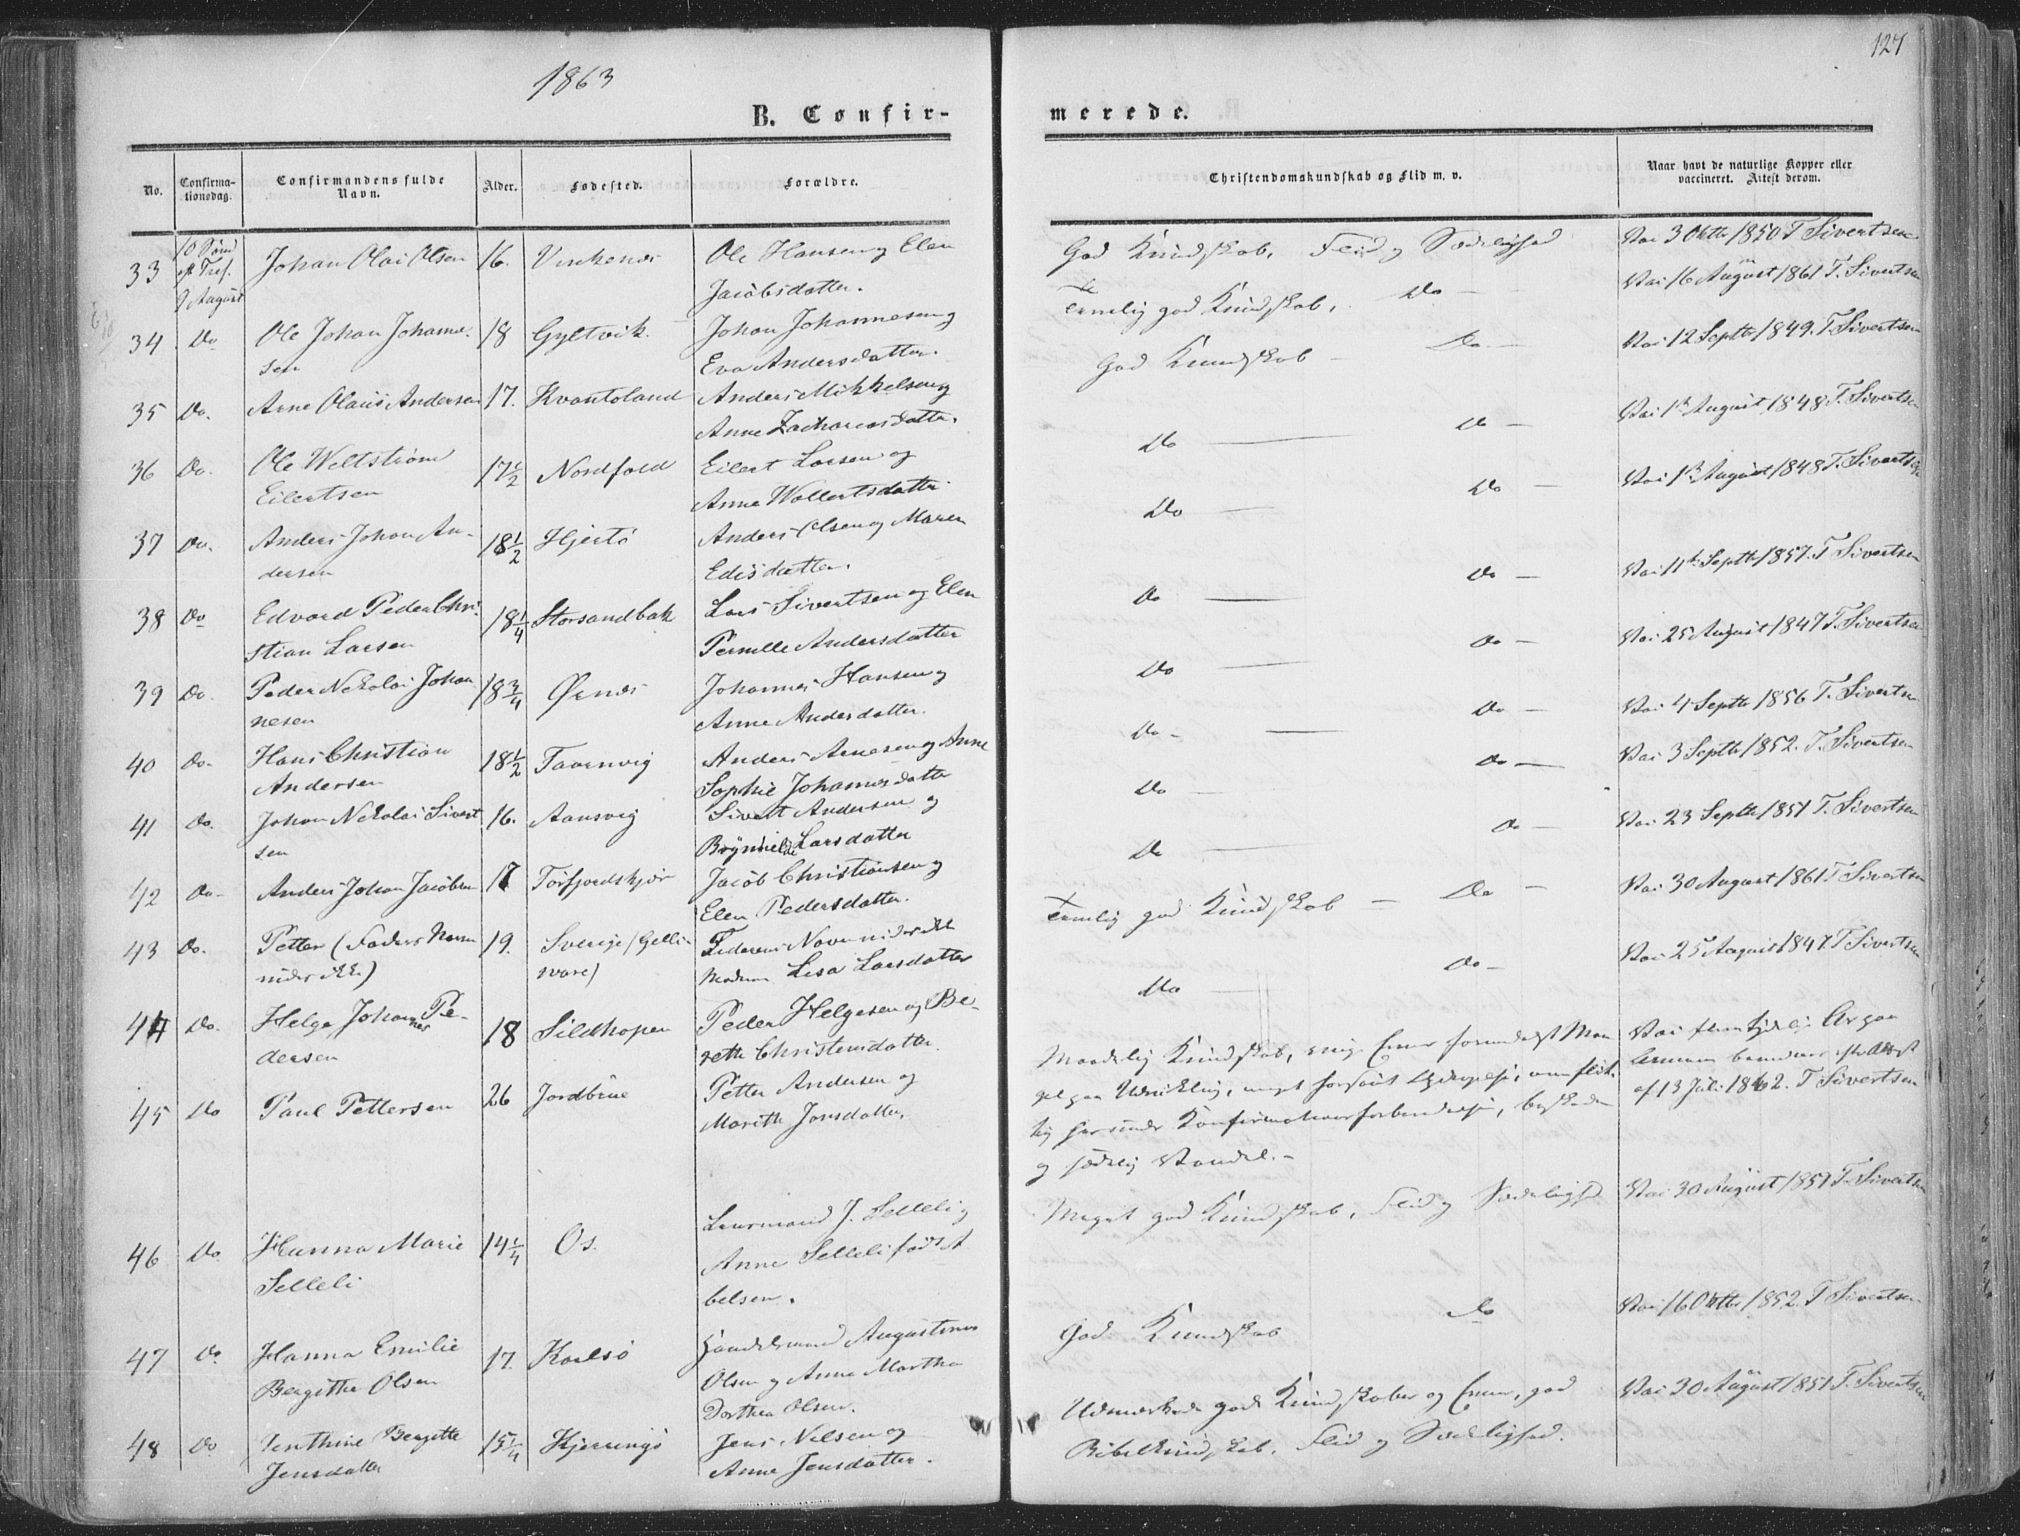 1863
127
B. Confir-
merede.
No.
Confirma-
tionsdag.
Confirmandens fulde
Navn.
Alder.
Fødested.
Forældre.
Christendomskundskab og Flid m. v.
Naar havt de naturlige Kopper eller
vaccineret. Attest derom.
33 10 Sønd Johan Olai Olsen 16. Ole Hansen og Elen
eft Tref.
9 August Jacobsdatter.
God Kundskab, Flid og Sædelighed
Vac 3 Oktb 1850 T Sivertsen
34 Do Ole Johan Johanne- 18 Gyltvik. Johan Johannesen og
sen Eva Andersdatter.
Temelig god Kundskab, Do —
Vac 16 August 1861 T. Sivertsen
35 Do. Arne Olaus Andersen 17. Kvantoland Anders Mikkelsen og
Anne Zachariasdatter.
God Kundskab — Do —
Vac 12 Septb 1849. T. Sivertsen
36 Do. Ole Weltstrøm 17½ Nordfold Eilert Larsen og
Eilertsen Anne Wollertsdatter
Do — Do —
Vac 1 August 1848 T. Sivertsen
37 Do. Anders Johan An- 18½ Hjertø Anders Olsen og Maren
dersen Edisdatter.
Do — Do —
Vac 1 August 1848 T. Sivertsen
38 Do Edvard Peder Chri- 18¼ Storsandbak Lars Sivertsen og Elen
stian Larsen Pernille Andersdatter
Do — Do —
Vac 11 Septb 1857. T Sivertsen
39 Do. Peder Nikolai Johan 18¾ Ørnes Johannes Hansen og
nesen Anne Andersdatter.
Do — Do —
Vac 25 August 1847 T. Sivertsen
40 Do. Hans Christian 18½ Taarnvig Anders Arnesen og Anne
Andersen Sophie Johannesdatter
Do — Do —
Vac 4 Septb 1856 T. Sivertsen
41 Do. Johan Nikolai Sivert 16. Aansvig Sivert Andersen og
sen Brynhilde Larsdatter
Do — Do —
Vac 3 Septb 1852. T. Sivertsen
42 Do. Anders Johan Jacobsen 17 Tørfjordskjær Jacob Christiansen og
Elen Pedersdatter.
Do — Do —
Vac 23 Septb 1851 T. Sivertsen
43 Do. Petter (Faders Navn 19. Sverige (Gelli-
vides ikke) vare) Faderens Navn vides ikke
Moderen Lisa Larsdatter
Temelig god Kundskab — Do —
Vac 30 August 1861 T Sivertsen
44 Do. Helge Johannes Pe- 18 Sildhopen Peder Helgesen og Be-
dersen rette Christensdatter.
Do — Do —
Vac 25 August 1847. T Sivertsen
45 Do Paul Pettersen 26 Jordbrue Petter Andersen og
Marith Jonsdatter.
Maadelig Kundskab,
og sædelig Vandel. —
af 13 Juli 1862. T Sivertsen
46 Do. Hanna Marie 14¼ Os. Lensmand J. Selleli og
Selleli Anne Selleli født A
belsen.
Meget god Kundskab, Flid og Sædelighed
Vac 30 August 1851 T. Sivertsen
47 Do Hanna Emilie 17. Karlsø Handelsmand Augustinus
Bergithe Olsen Olsen og Anne Martha
Dorthea Olsen.
God Kundskab Do
Vac 16 Oktbr 1852. T Sivertsen
48 Do Jenthine Bergitte 15¼ Kjerringø Jens Nilsen og
Jensdatter Anne Jensdatter.
Udmærkede gode Kundskaber og Evner, god
Bibelkundskab, Flid og Sædelighed.
Vac 30 August 1851 T. Sivertsen